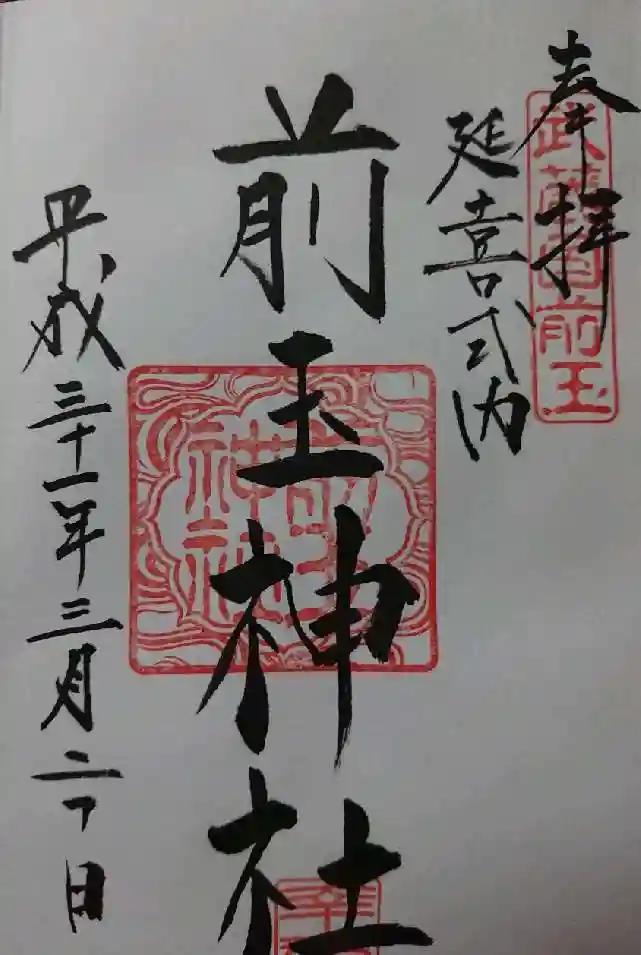 奉拝
武蔵国前玉
延喜式内
前玉神社
前玉神社
平成三十一年三月二十日